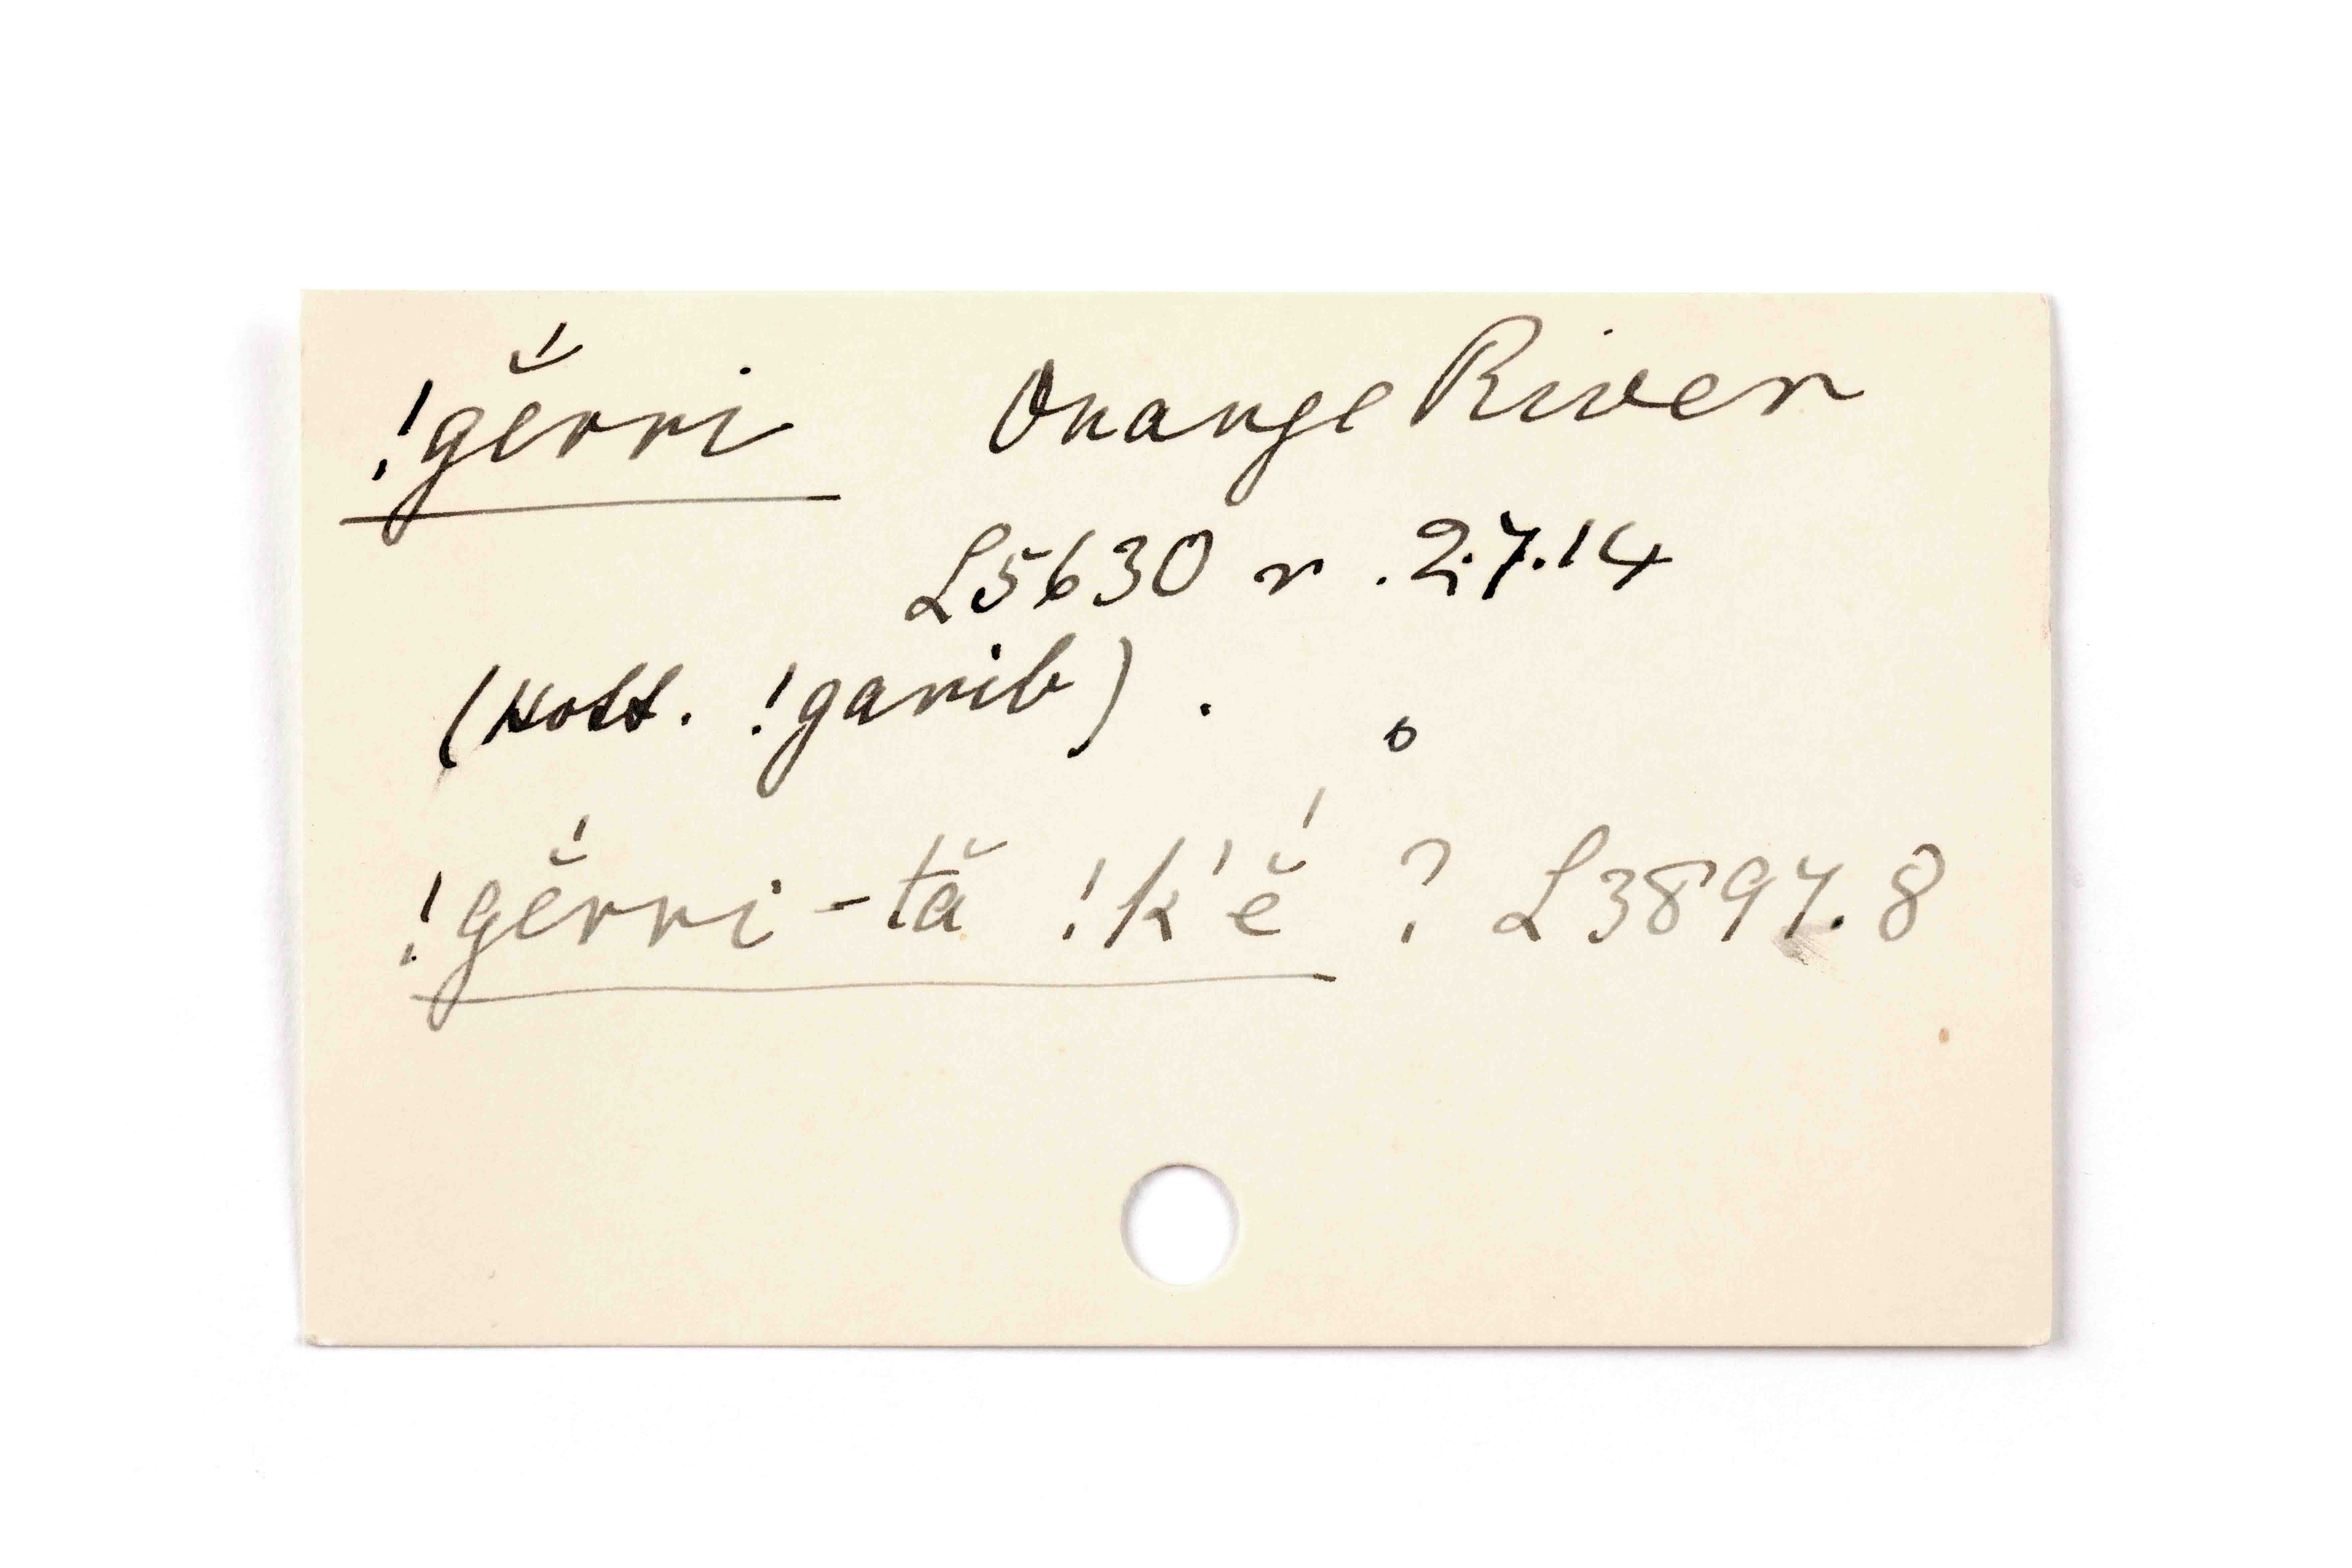 !gĕ́rri Orange River
L5630 r. 27.14
(Hott. !garib).
!gĕ́rri-tă !k'ĕ́ ? L3897.8